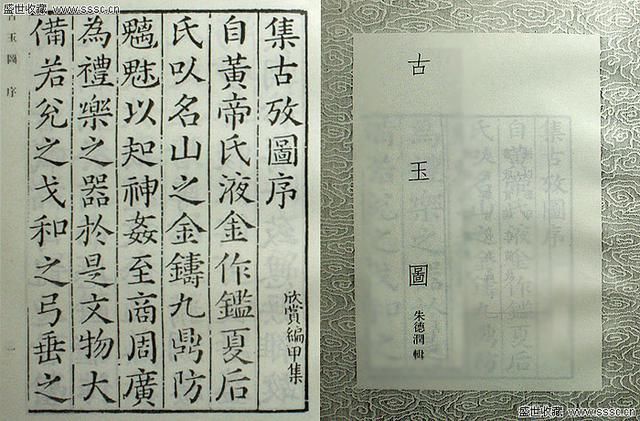 盛世收藏 www.sssc.cn
集古攷圖序
自黄帝氏液金作鑑夏后
氏㕥名山之金鑄九鼎防
魑魅以知神姦至商周廣
為禮樂之器於是文物大
備若兊之戈和之弓垂之
欣賞編甲集
古玉圖序
一
古玉圖
朱德潤輯
盛世收藏 www.sssc.cn